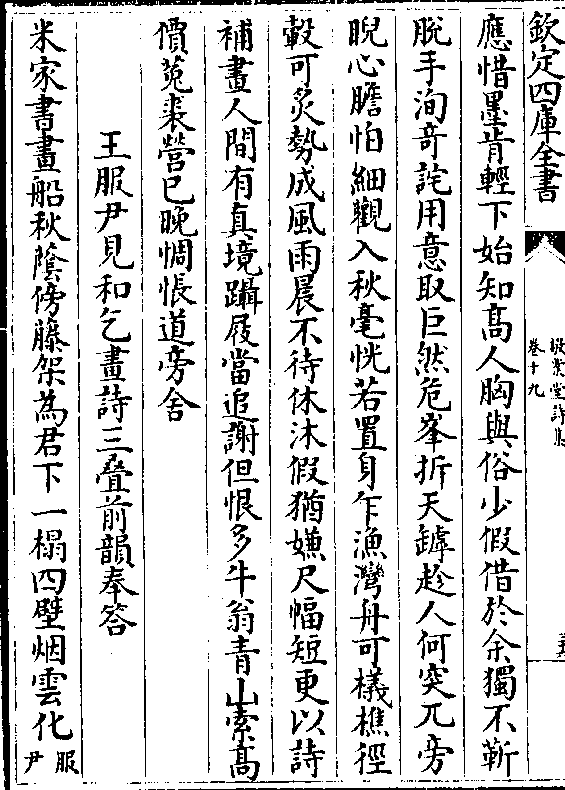 欽定四庫全書
敬業堂詩集
卷十九
應惜墨肯輕下始知髙人胸與俗少假借於余獨不靳
脱手洵竒詫用意取巨然危峯拆天罅趁人何突兀旁
睨心膽怕細觀入秋毫恍若置身乍漁灣舟可檥樵徑
轂可炙勢成風雨晨不待休沐假猶嫌尺幅短更以詩
補畫人間有真境躡屐當追謝但恨多牛翁青山索髙
價菟裘營已晚惆悵道旁舍
王服尹見和乞畫詩三疊前韻奉答
米家書畫船秋蔭傍藤架為君下一榻四壁烟雲化服
尹